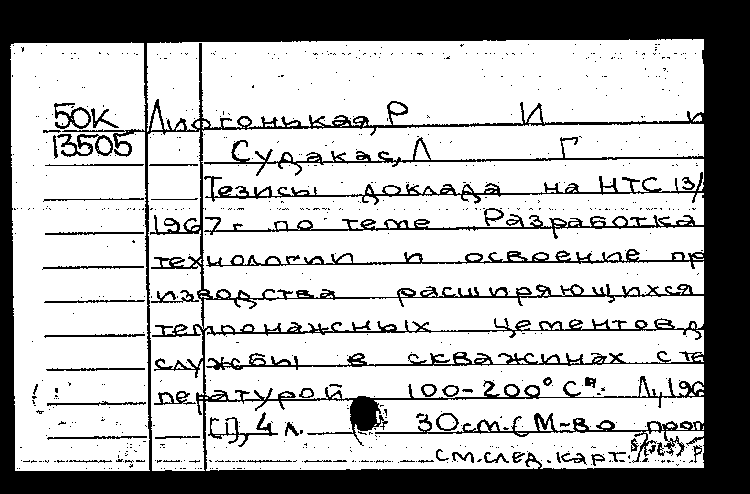 50К Лиогонькая, Р И и
13505 Судакас, Л Г
Тезисы доклада на НТС 13/
1967г по теме Разработка
технологии и освоение пр
изводства расширяющихся
тампонажных цементов д
службы в скважинах с те
пературой 100-200°С". Л, 196
[1], 4 л. 30см. (М-во пром
см. след. карт.